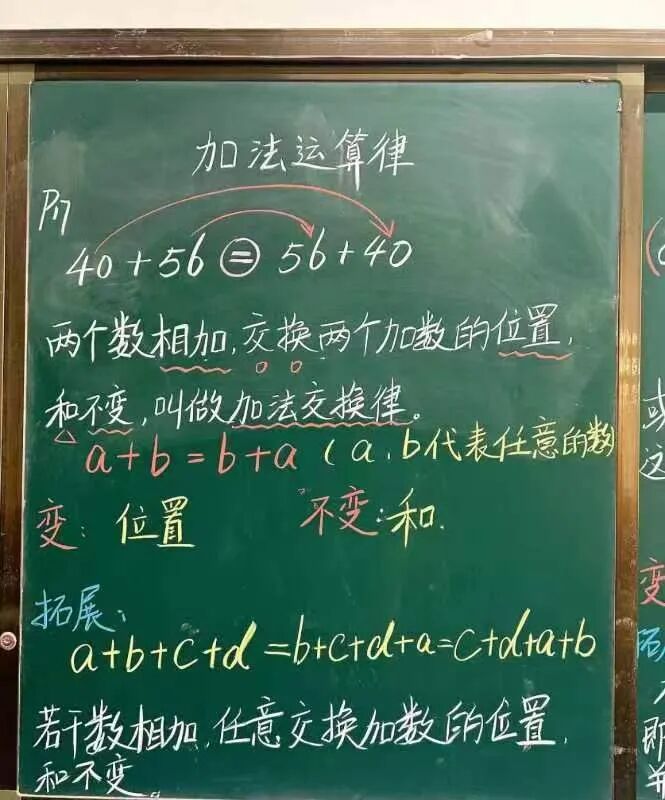 加法运算律
P17
40+56=56+40
两个数相加,交换两个加数的位置,
和不变,叫做加法交换律。
a+b=b+a (a、b代表任意的数
变: 位置 不变:和.
拓展:
a+b+c+d=b+c+d+a=c+d+a+b
若干数相加,任意交换加数的位置,
和不变
或
这
变
拓
即